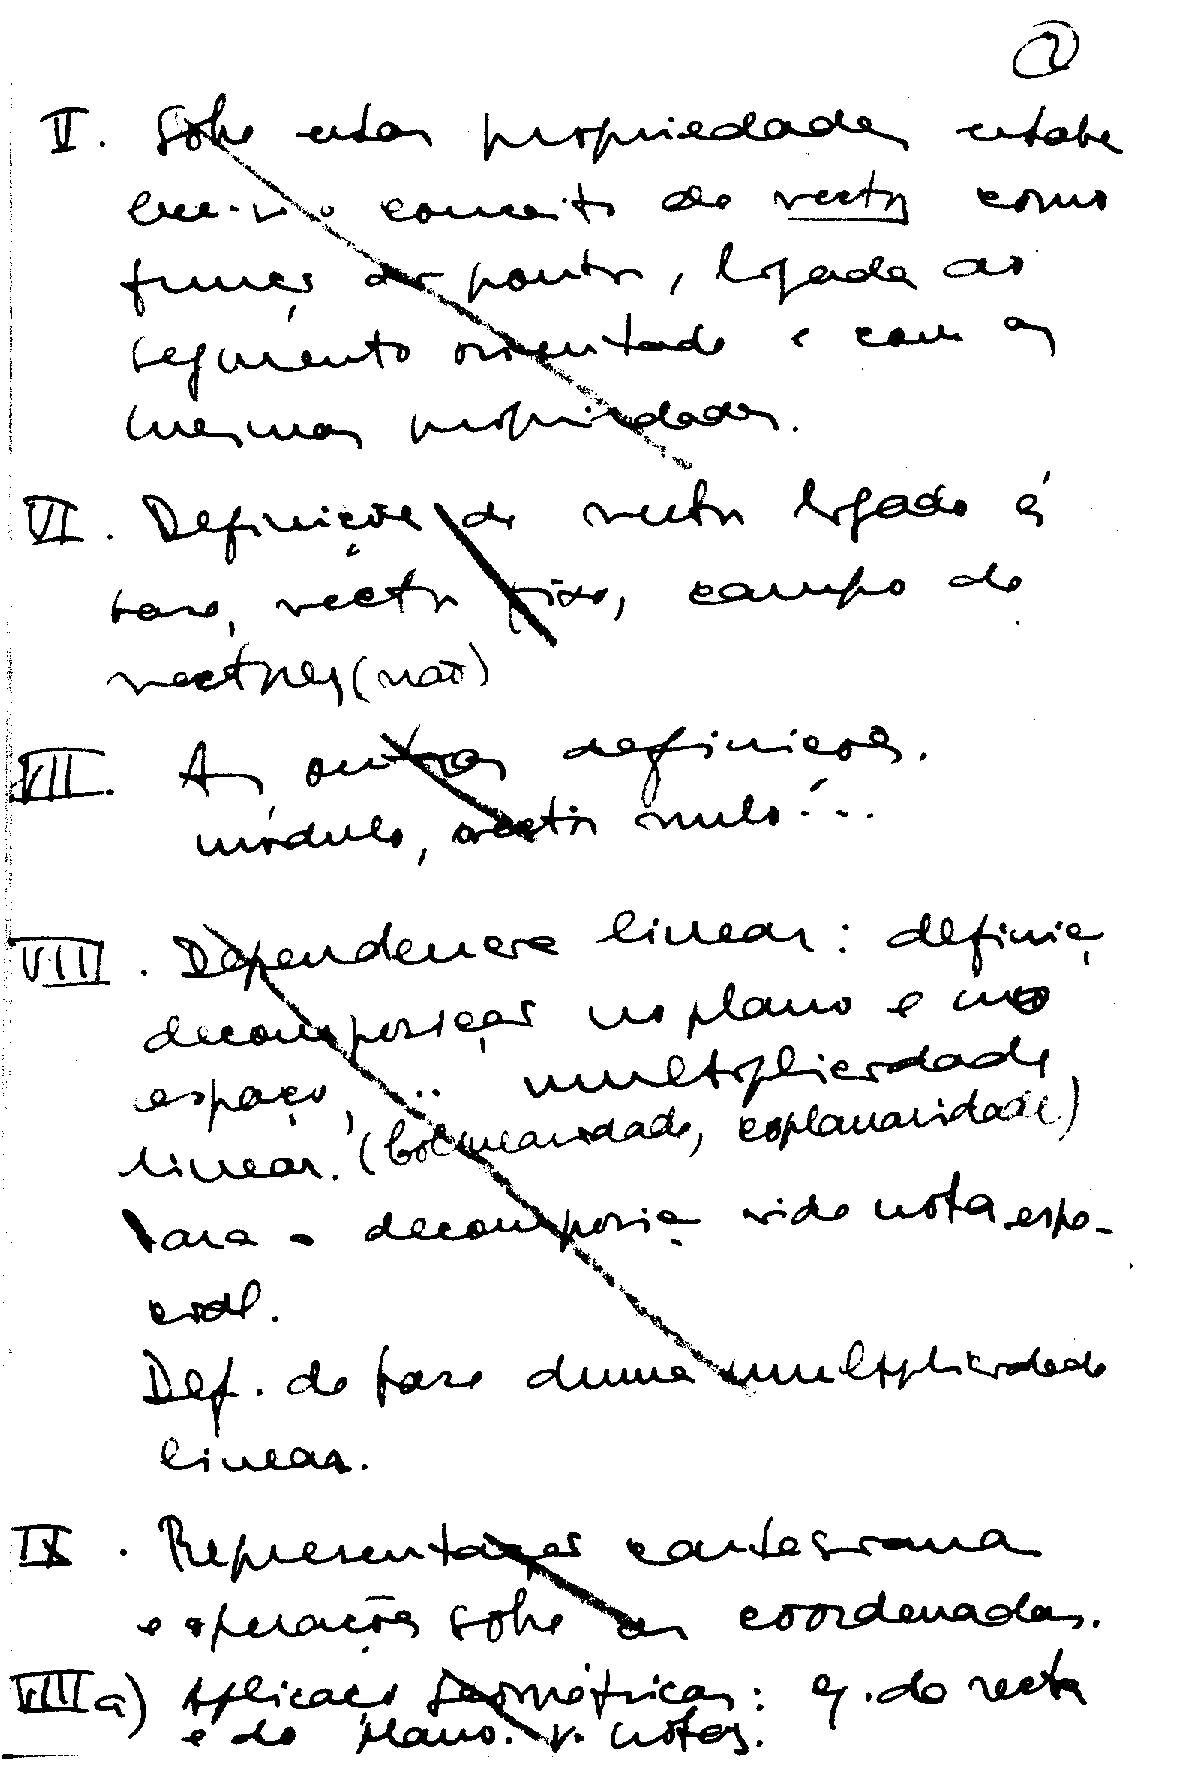 2
V. Sobre estas propriedades estabe
lece-se o conceito de vector como
função dos pontos, ligada ao
segmento orientado e com as
mesmas propriedades.
VI. Definições de vector ligado á
base, vector fixo, campo de
vectores (não)
VII. As outras definições.
módulo, vector nulo...
VIII. Dependencia linear: definiç
decomposição no plano e no
espaço, .. multiplicidade
linear. (colinearidade, coplanaridade)
Para a decomposiç vide nota espe-
cial.
Def. de base duma multiplicidade
linear.
IX. Representação cartesiana
e operações sobre as coordenadas.
VIII a) Aplicação geométricas: eq. da recta
e do plano. v. notas.